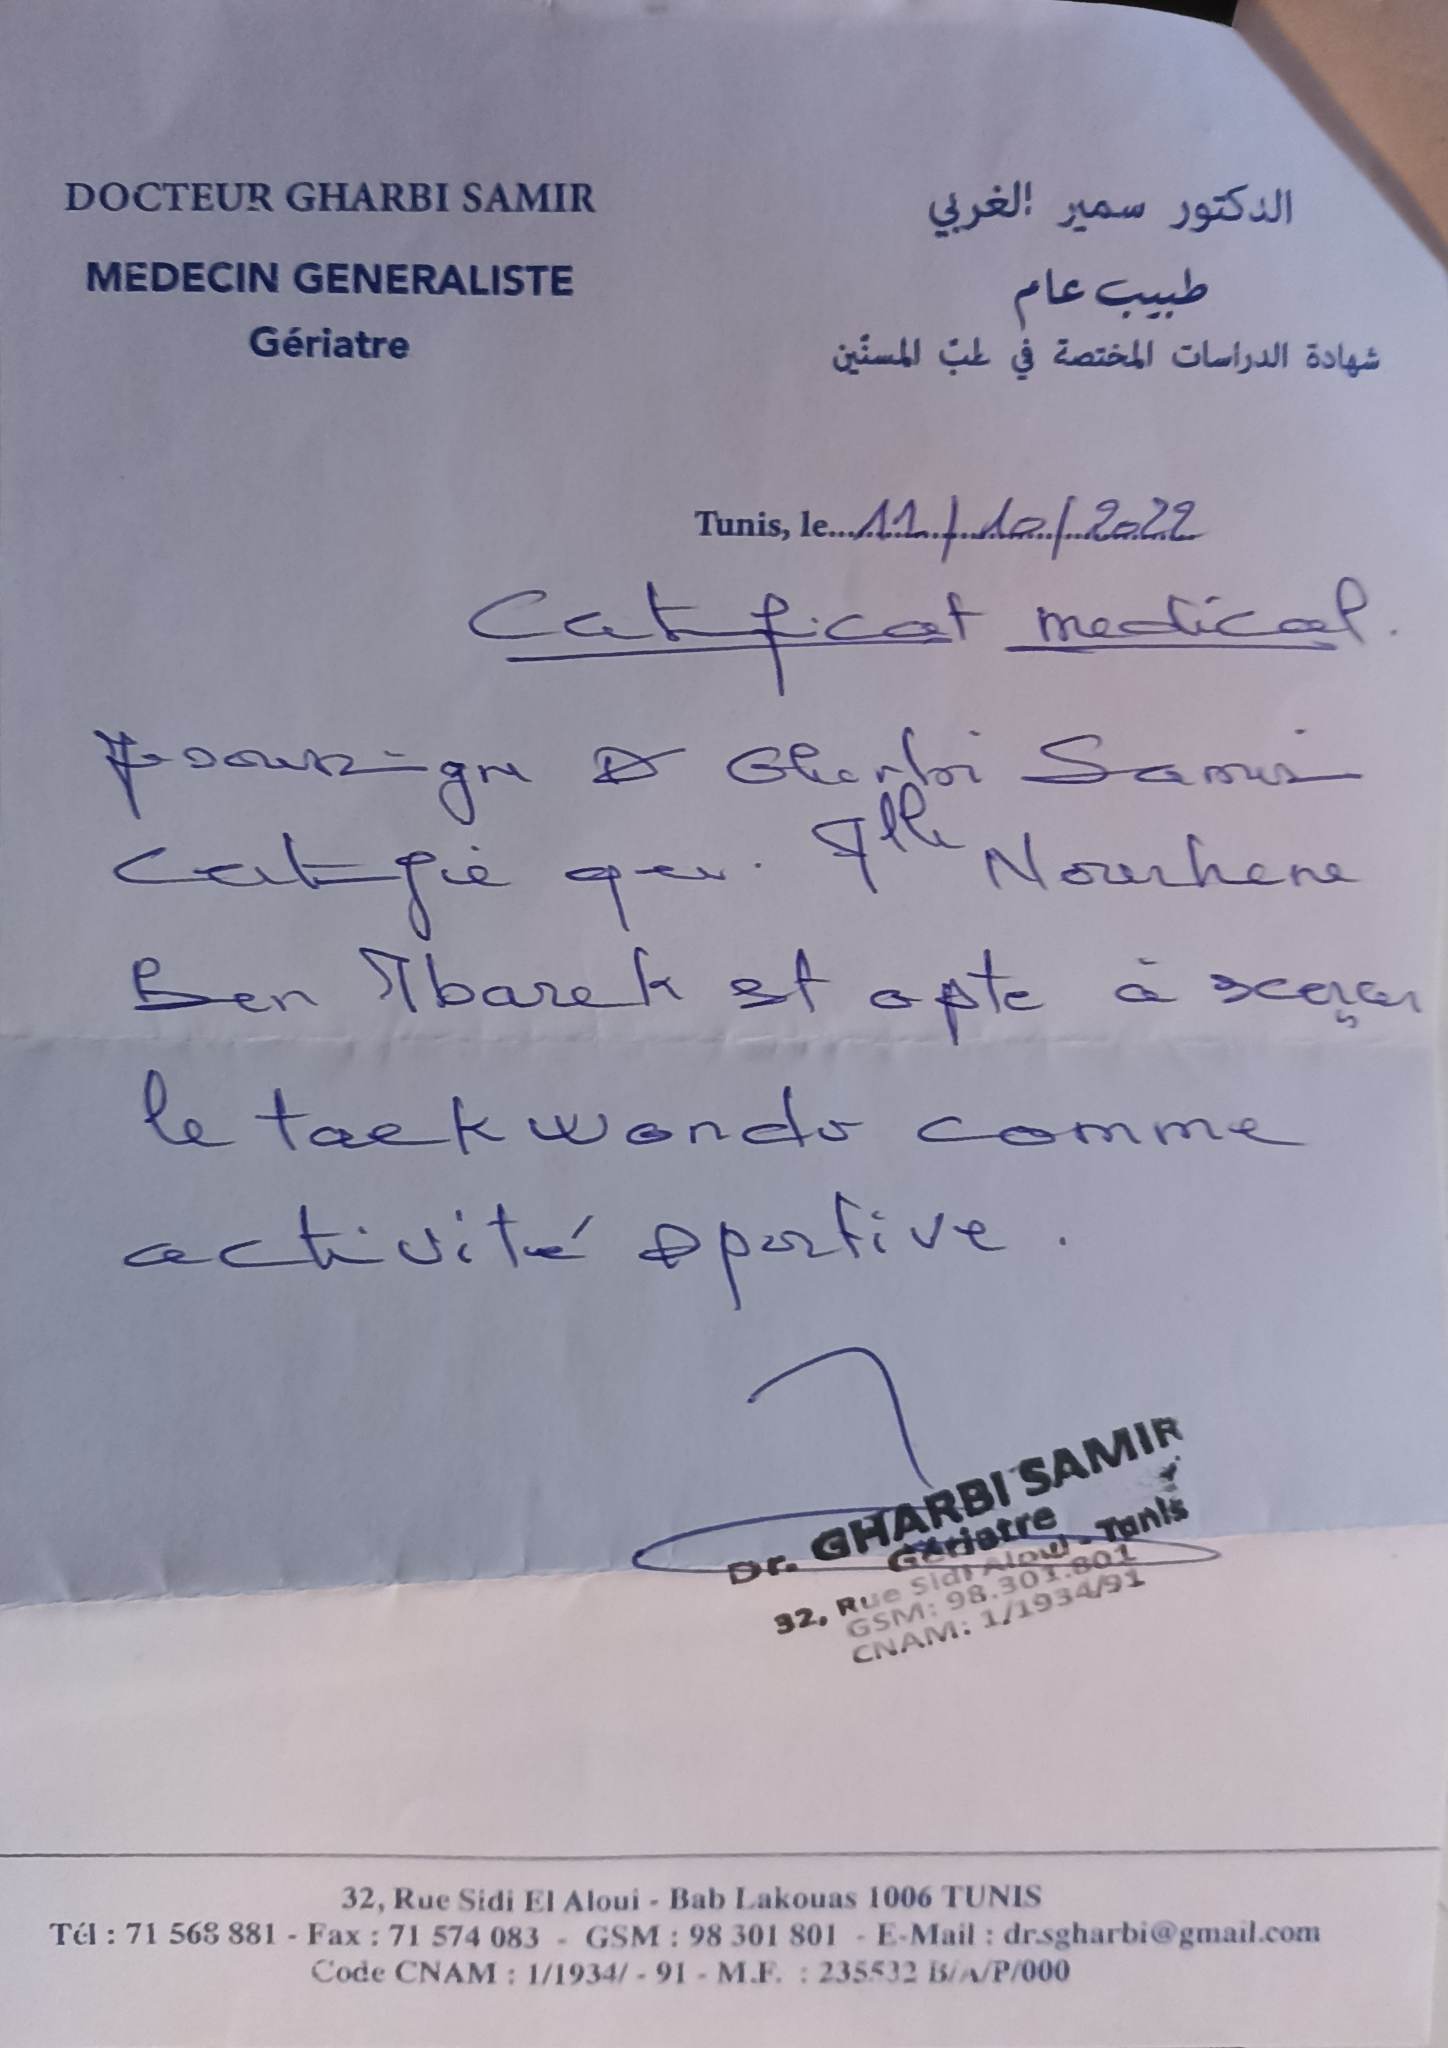 DOCTEUR GHARBI SAMIR
MEDECIN GENERALISTE
Gériatre
الدكتور سمير الغربي
طبيب عام
شهادة الدراسات المختصة في طبّ المسنّين
Tunis, le...11/10/2022
Certificat medical.
Je soussigné Dr Gharbi Samir
Certifie que Mlle Nourhene
Ben Mbarek est apte à exercer
le taekwondo comme
activité sportive.
Dr. GHARBI SAMIR
Gériatre
32, Rue Sidi Aloui - Tunis
GSM: 98.301.801
CNAM: 1/1934/91
32, Rue Sidi El Aloui - Bab Lakouas 1006 TUNIS
Tél : 71 568 881 - Fax : 71 574 083 - GSM : 98 301 801 - E-Mail : dr.sgharbi@gmail.com
Code CNAM : 1/1934/ - 91 - M.F. : 235532 B/A/P/000